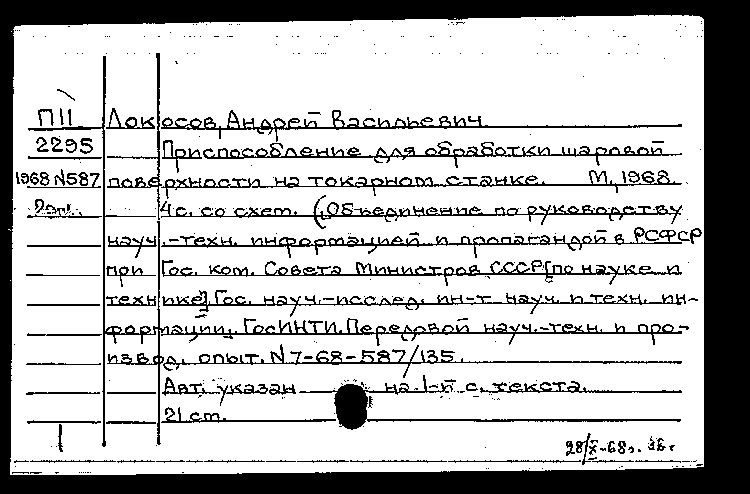 П11 Локосов, Андрей Васильевич
2295 Приспособление для обработки шаровой
1968 N587 поверхности на токарном станке. М., 1968.
4с. со схем. (Объединение по руководству
науч.-техн. информацией и пропагандой в РСФСР
при Гос. ком. Совета Министров СССР [по науке и
технике]. Гос. науч.-исслед. ин-т науч. и техн. ин-
формации. ГосИНТИ. Передовой науч.-техн. и про-
извод. опыт. N7-68-587/135.
Авт. указан на 1-й с. текста.
21 см.
28/X-68г.